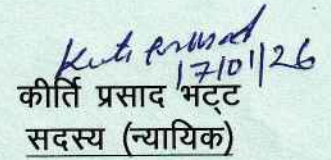 Kirti Prasad
17/01/26
कीर्ति प्रसाद भट्ट
सदस्य (न्यायिक)